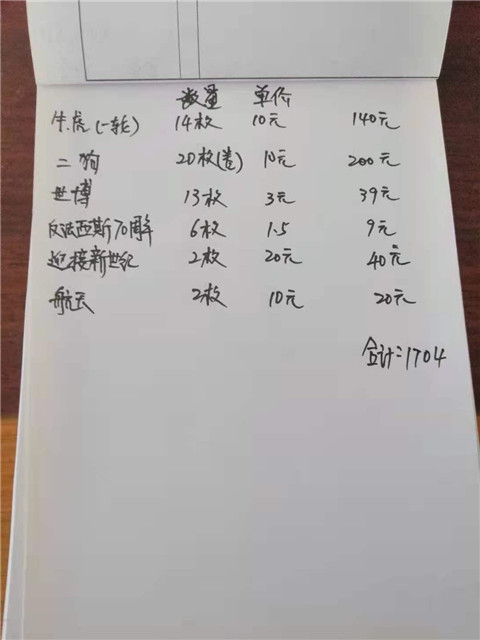 数量 单价
牛.虎(一轮) 14枚 10元 140元
二狗 20枚(卷) 10元 200元
世博 13枚 3元 39元
反法西斯70周年 6枚 1.5 9元
迎接新世纪 2枚 20元 40元
航天 2枚 10元 20元
合计:1704